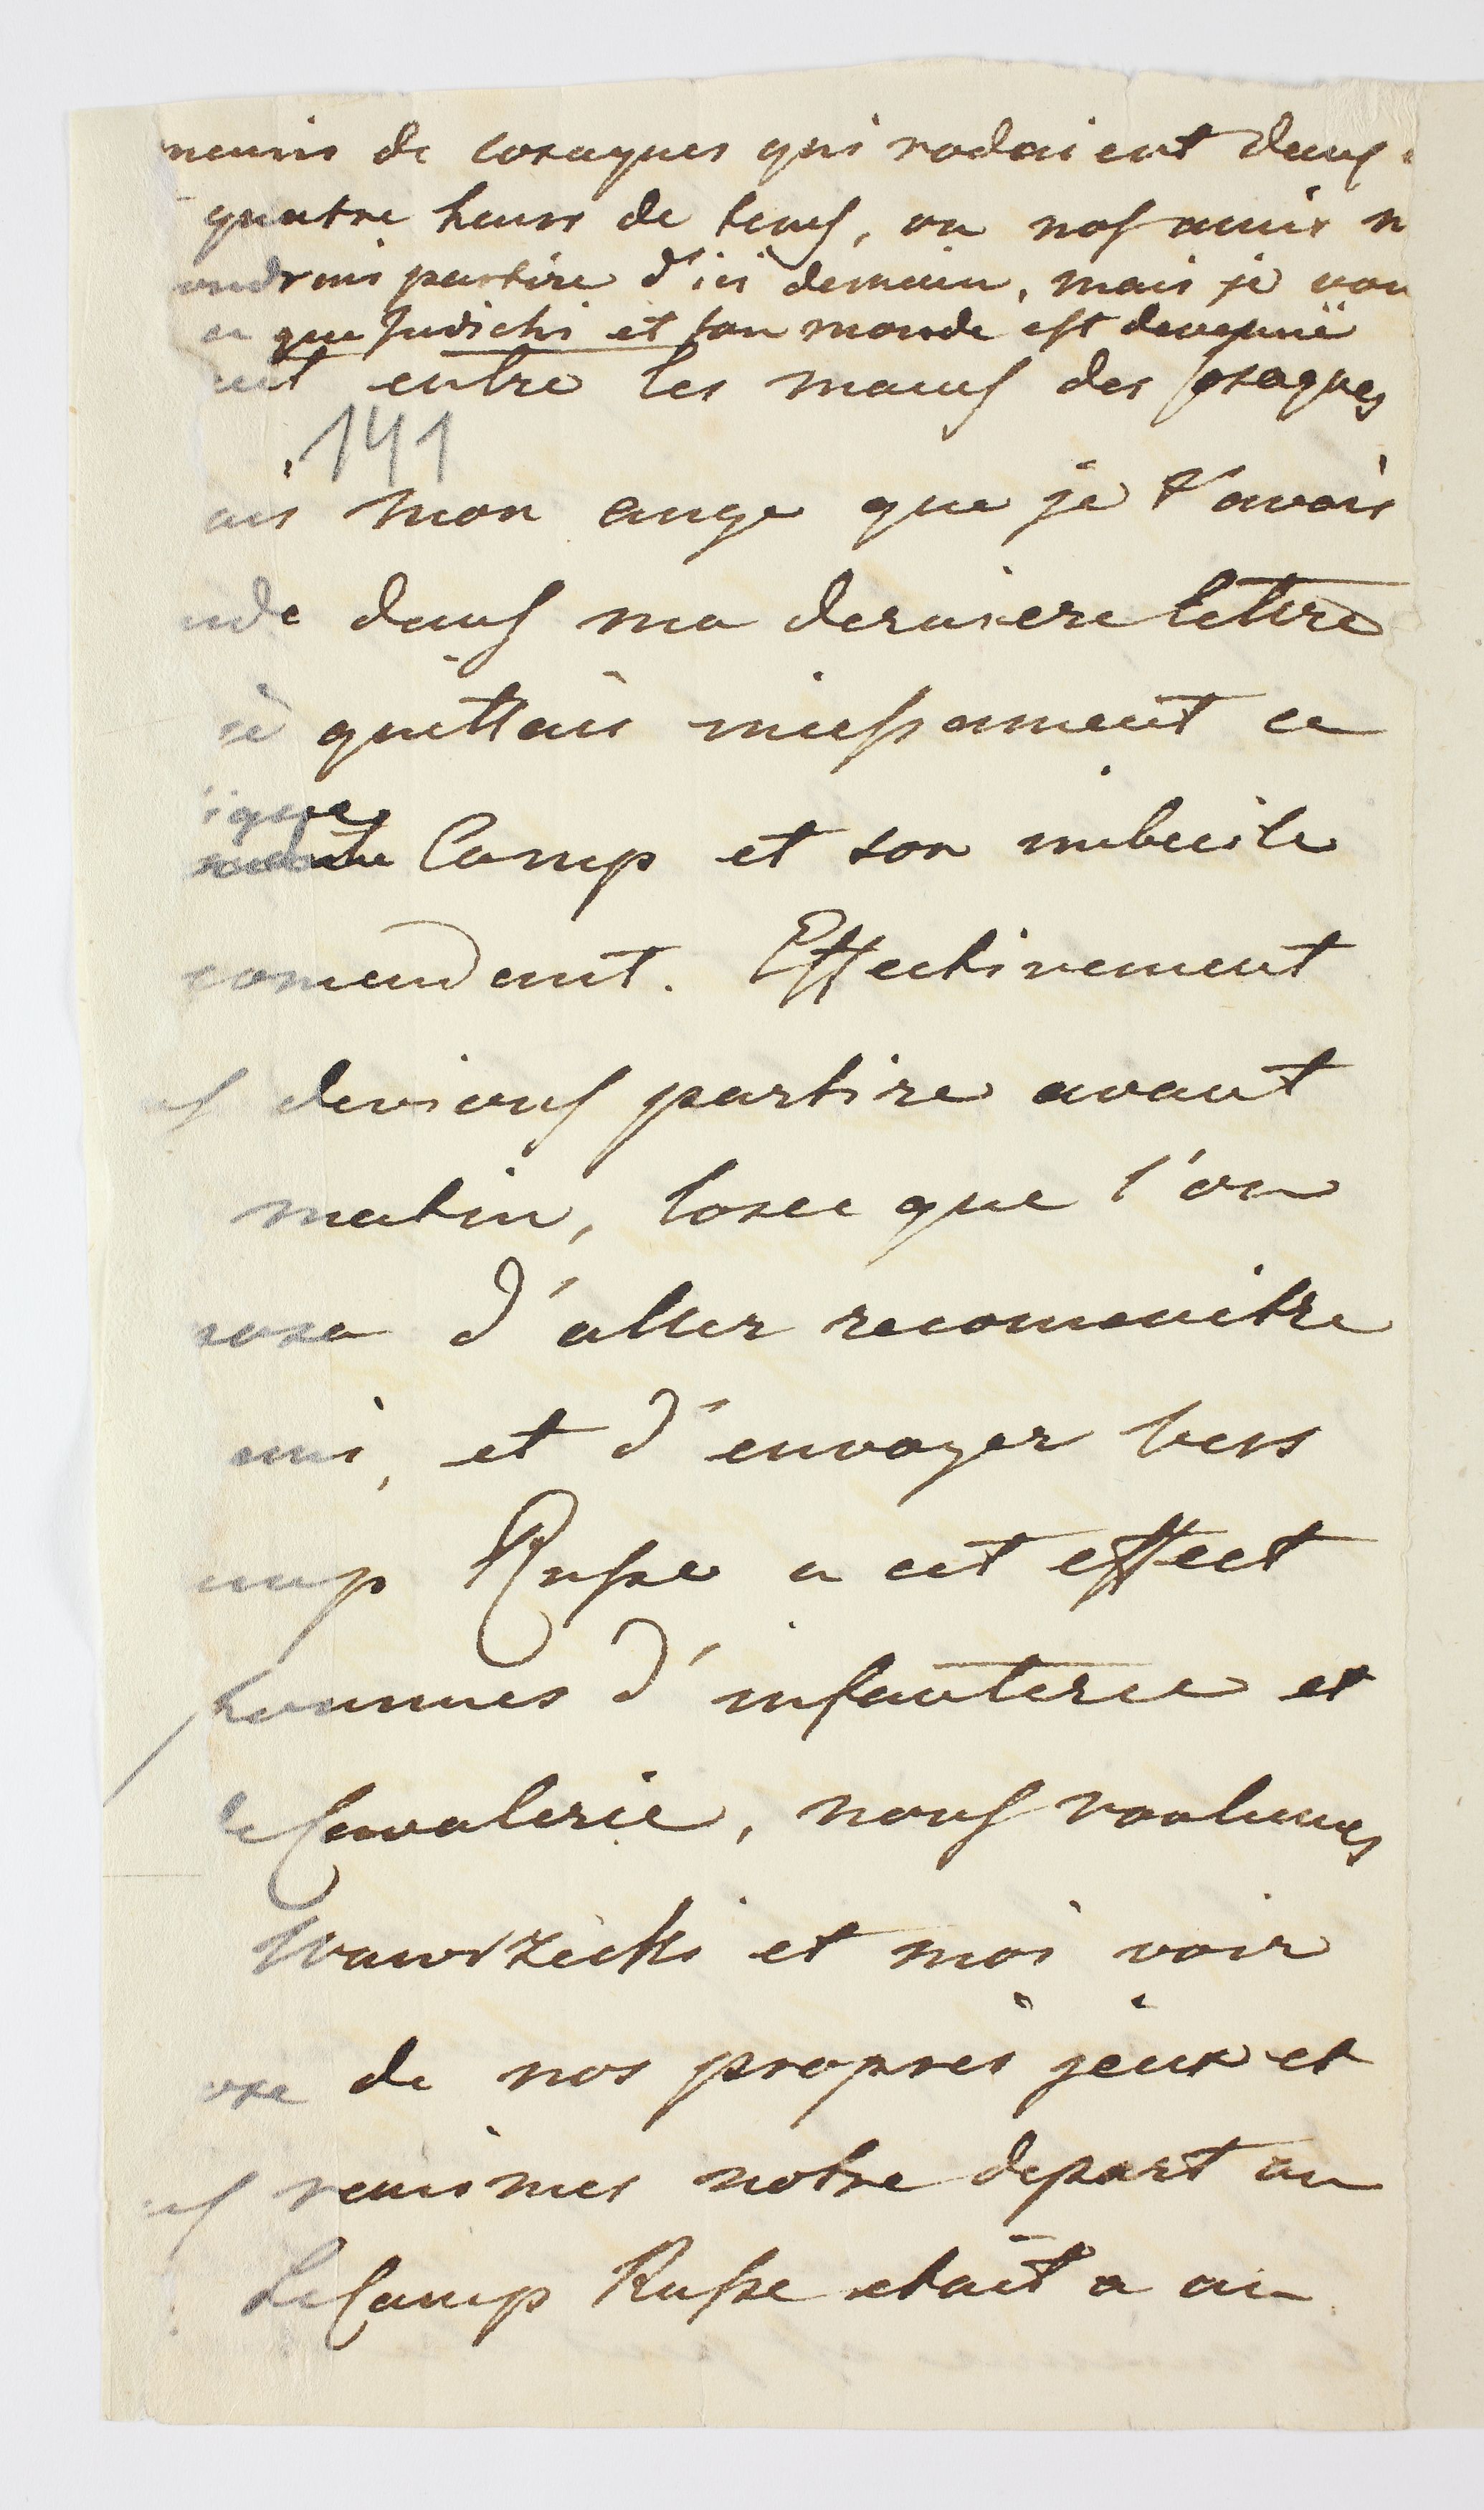 de cosaques qui rodaient dans
quatre heurs de tems, on nos amis
partire d'ici demain, mais je
que Judicki et son monde est devenuë
entre les mains des cosaques
141
ais mon ange que je t'avois
nde dans ma derniere lettre
quittais incessament ce
ique
Camp et son imbecile
comendent. Effectivement
devions partire avant
matin, losce que l'on
posa d'aller reconnoitre
mi, et d'envoyer vers
amp Russe a cet effect
hommes d'infanterie et
de Cavalerie, nous voulumes
Wawrzecki et moi voir
ose de nos propres jeux et
remimes notre depart au
Le Camp Russe etait a un